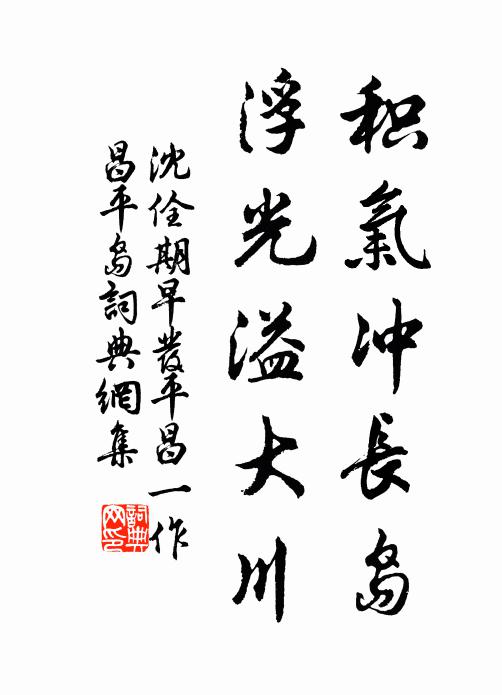 积氣冲長岛
浮光溢大川
沈佺期早發平昌一作
昌平岛詞典網集
詞典网印